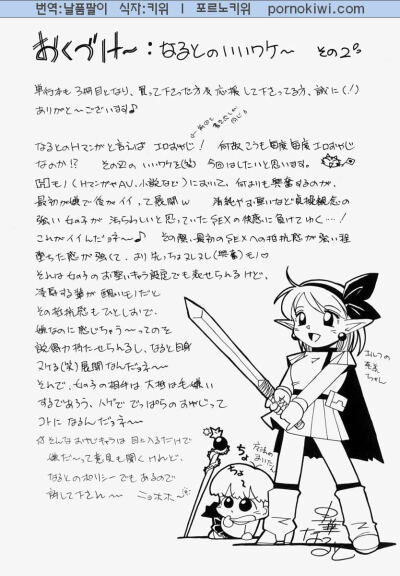 번역:날품팔이 식자:키위 | 포르노키위 pornokiwi.com
おくづけ〜：なるとのいいワケ〜 その2
単行本も3冊目となり、買って下さった方&応援して下さってる方、誠に(！)
ありがと〜ございます♪
なるとのHマンガと言えば エロおやじ！ 何故こうも毎度毎度エロおやじ
なのか!? その辺のいいワケを(笑) 今回はしたいと思います。
モノ(HマンガやAV、小説など)において、何よりも興奮するのが、
最初が嫌で後がイイって展開w 清純やお堅いなど貞操観念の
強い女の子が 汚らわしいと思っていたSEXの快感に負けてゆく…！
これがイイんだョネ〜♪ その際、最初のSEXへの抵抗感が強い程
堕ちた感が強くて、より
それは女の子のお堅いキャラ設定でも表せられるけど、
凌辱する輩が醜いモノだと
その抵抗感もひとしおで、
嫌なのに感じちゃう〜ってのを
説得力持たせられるし、なると自身
ヌケる(笑)展開なんだョネ〜
それで、女の子の相手は大抵は毛嫌い
するであろう、ハゲで でっぱらのおやじって
コトに なるんだョネ〜
☆そんなおやじキャラは 目に入るだけで
嫌だ〜って意見も聞くけれど、
なるとのポリシーでもあるので
許して下され〜 ニョホホ〜
エルフの
ちゃん
ちょ
ちょ〜